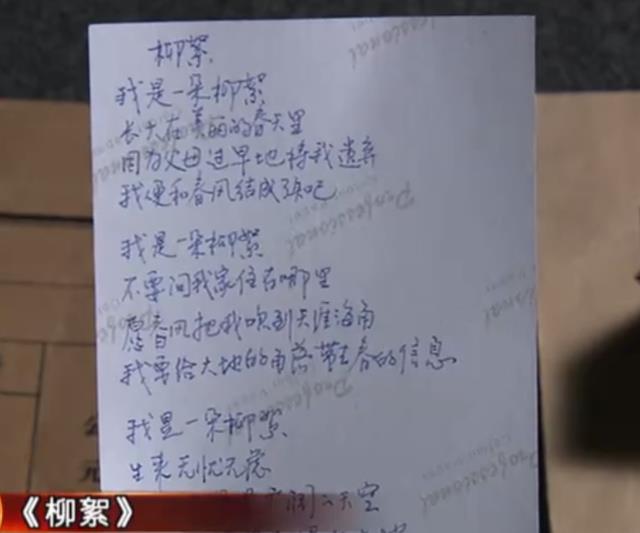 柳絮
我是一朵柳絮
长大在美丽的春天里
因为父母过早地将我遗弃
我便和春风结成了知己
我是一朵柳絮
不要问我家住在哪里
愿春风把我吹到天涯海角
我要给大地的角落带去春的信息
我是一朵柳絮
生来无忧无虑
广阔的天空
公
元
Professional
《柳絮》